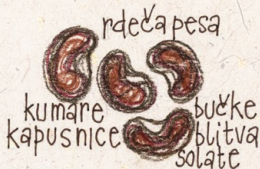 rdeča pesa
kumare
kapusnice
bučke
blitva
solate